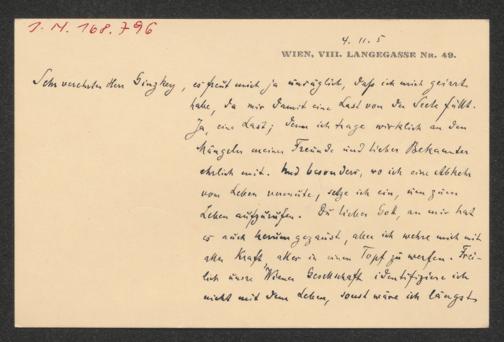 J. N. 168.796
4. 11. 5
WIEN, VIII. LANGEGASSE NR. 49.
Sehr verehrter Herr Ginzkey, es freut mich ja unsäglich, daß ich mich geirrt
habe, da mir damit eine Last von der Seele fällt.
Ja, eine Last; denn ich trage wirklich an den
Mängeln meiner Freunde und lieber Bekannter
ehrlich mit. Und besonders, wo ich eine Abkehr
vom Leben vermute, setze ich ein, um zum
Leben aufzurufen. Du lieber Gott, an mir hat
es auch herum gezaust, aber ich wehre mich mit
aller Kraft alles in einen Topf zu werfen. Frei-
lich unsre "Wiener Gesellschaft identifiziere ich
nicht mit dem Leben, sonst wäre ich längst